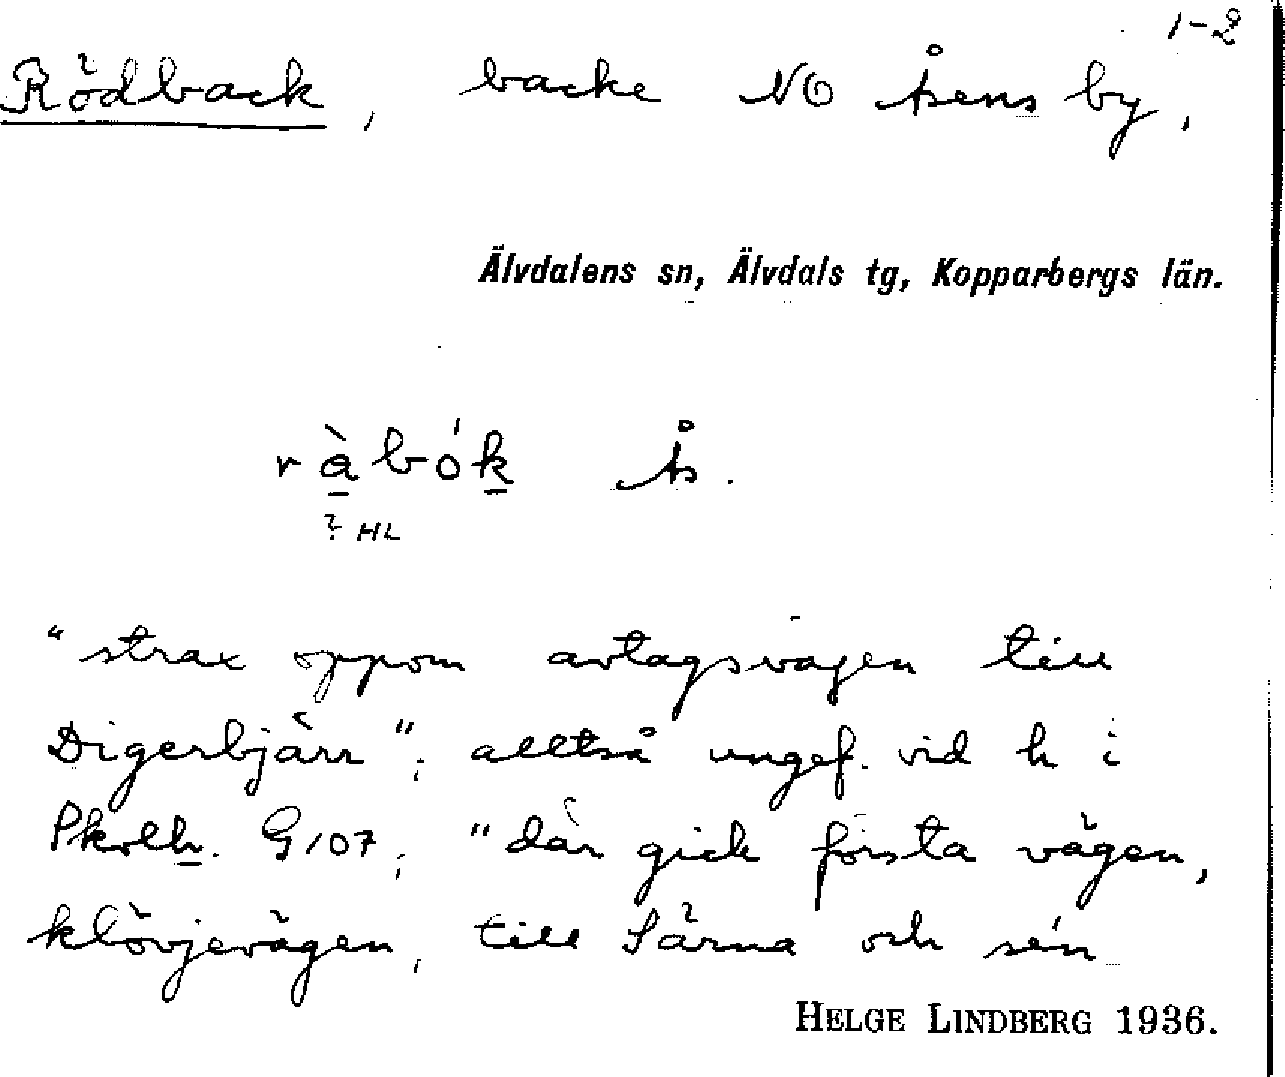 1-2
Rödback, backe NO Åsens by,
Älvdalens sn, Älvdals tg, Kopparbergs län.
ràbók Ås.
? HL
"strax oppom avtagsvägen till
Digerbjärr"; alltså ungef. vid h i
Pkolh. G107; "där gick första vägen,
klövjevägen, till Särna och sén
HELGE LINDBERG 1936.